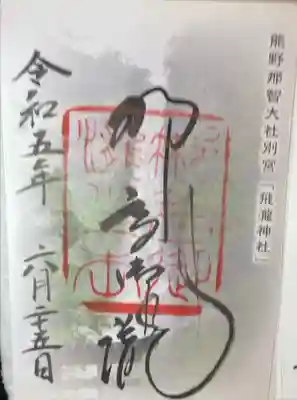 熊野那智大社別宮「飛瀧神社」
那智御瀧
令和五年 六月二十五日